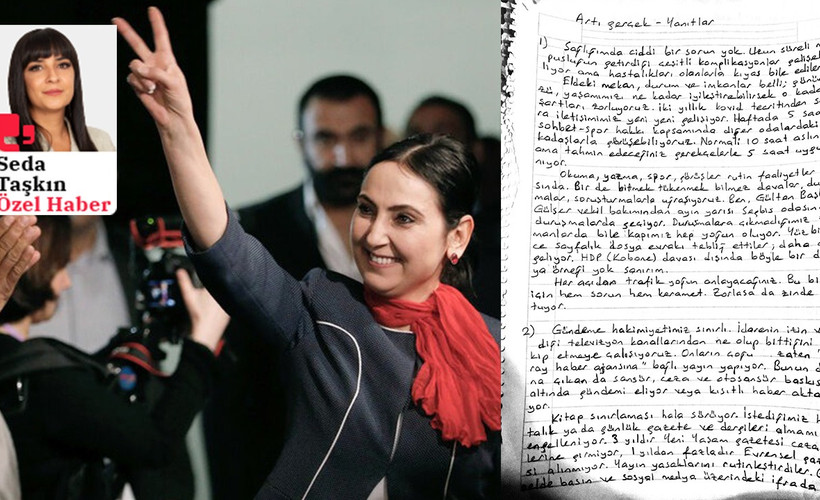 Seda
Taşkın
Özel Haber
Artı Gerçek - Yanıtlar
1) Sağlığımda ciddi bir sorun yok. Uzun süreli
pusluğun getirdiği çeşitli komplikasyonlar gelişe
liyor ama hastalıkları olanlarla kıyas bile edile
Eldeki mekan, durum ve imkanlar belli;
zü, yaşamımız ne kadar iyileştirebilirsek o kada
şartları zorluyoruz. iki yıllık kovid tecritinden s
ra iletişimimiz yeni yeni gelişiyor. Haftada 5 saa
sohbet-spor hakkı kapsamında diğer odalardaki
kadaşlarla görüşebiliyoruz. Normali 10 saat aslın
ama tahmin edeceğiniz gerekçelerle 5 saat uygu
nıyor.
Okuma, yazma, spor, görüşler rutin faaliyetler
sında. Bir de bitmek tükenmek bilmez davalar, du
malar, soruşturmalarla uğraşıyoruz. Ben, Gültan Baş
Gülser vekil bakımından ayın yarısı Segbis odasın
duruşmalarda geçiyor. Duruşmalara çıkmadığımız
manlarda bile kapımız hep yoğun oluyor. Yüz bin
ce sayfalık dosya evrakı tebliğ ettiler, daha d
geliyor. HDP (Kobane) davası dışında böyle bir d
ya örneği yok sanırım.
Her açıdan trafik yoğun anlayacağınız. Bu bi
için hem sorun hem keramet. Zorlasa da zinde
tuyor.
2) Gündeme hakimiyetimiz sınırlı. İdarenin izin v
diği televizyon kanallarından ne olup bittiğini
kip etmeye çalışıyoruz. Onların çoğu zaten "
ray haber ajansına" bağlı yayın yapıyor. Bunun d
na çıkan da sansür, ceza ve otosansür baskıs
altında gündemi eliyor veya kısıtlı haber akta
yor.
Kitap sınırlaması hala sürüyor. İstediğimiz h
talık ya da günlük gazete ve dergileri almamı
engelleniyor. 3 yıldır Yeni Yaşam gazetesi ceza
lerine girmiyor, 1 yıldan fazladır Evrensel gaz
si alınmıyor. Yayın yasaklarını rutinleştirdiler.
elde basın ve sosyal medya üzerindeki ifrada